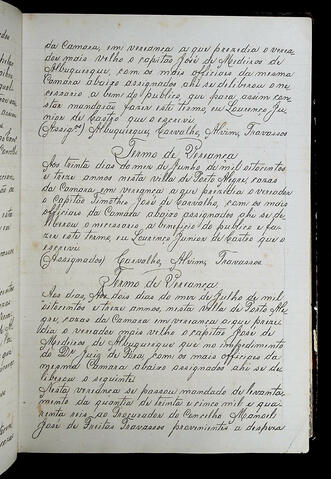 da Camara, em vereança a que prezedia o verea-
dor mais velho o capitão José de Medeiros de
Albuquerque, com os mais officiaes da mesma
Camara abaixo assignados ahi se deliberou o ne-
cessario a bem do publico, que para assim con-
star mandarão fazer este termo, eu Lourenço Ju-
nior de Castro que o escrevi.
(Assig.es) Albuquerque, Carvalho, Alvim, Travassos
Termo de Vereança
Aos trinta dias do mez de Junho de mil oitocentos
e treze annos, nesta villa de Porto Alegre, cazas
da Camara em vereança a que prezidio o vereador
o Capitão Timotheo José de Carvalho, com os mais
officiaes da Camara abaixo assignados ahi se de-
liberou o necessario a beneficio do publico e faz-
er este Termo, eu Lourenço Junior de Castro que o
escrevi
(Assignados) Carvalho, Alvim, Travassos
Termo de Vereança
Aos dias, Aos dois dias do mez de Julho de mil
oitocentos e treze annos, nesta villa de Porto Ale-
gre, cazas da Camara em vereança a que prezi-
dio o vereador mais velho o capitão José de
Medeiros de Albuquerque que no impedimento
do Dr. Juiz de Fora, com os mais officiaes da
mesma Camara abaixo assignados ahi se de-
liberou o seguinte
Nesta vereança se passou mandado de levanta-
mento da quantia de trinta e cinco mil e qua-
renta reis, ao Procurador do Concelho Manoel
José de Freitas Travassos provenientes a despeza